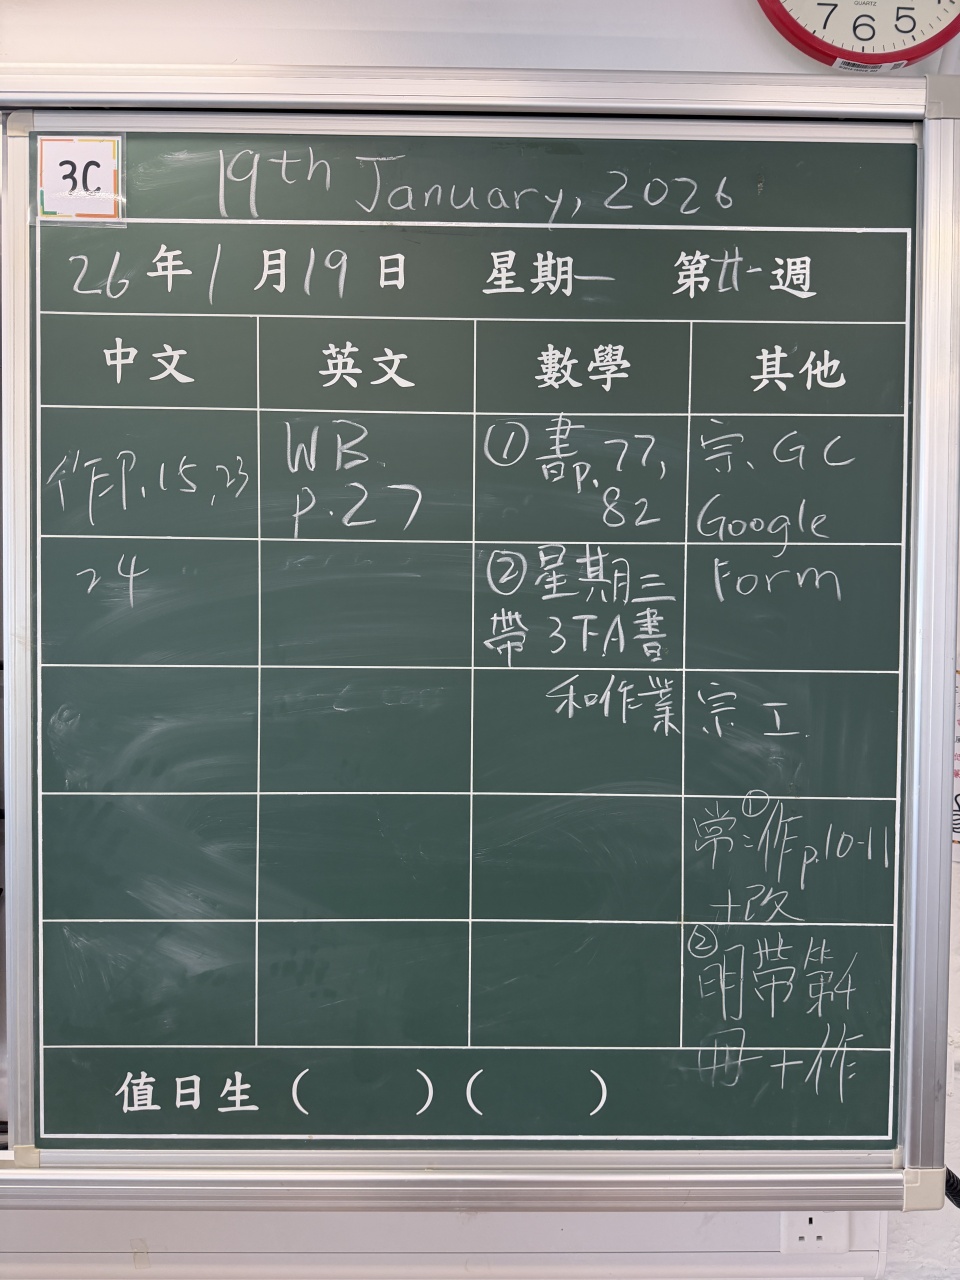 7 6 5
QUARTZ
3C
19th January, 2026
26年1月19日 星期一 第廿一週
中文 英文 數學 其他
作P.15,23
24
WB
p.27
①書p.77,
82
②星期三
帶3下A書
和作業
宗、GC
Google
Form
宗 工
常:①作p.10-11
+改
②明帶第4
冊+作
值日生( )( )